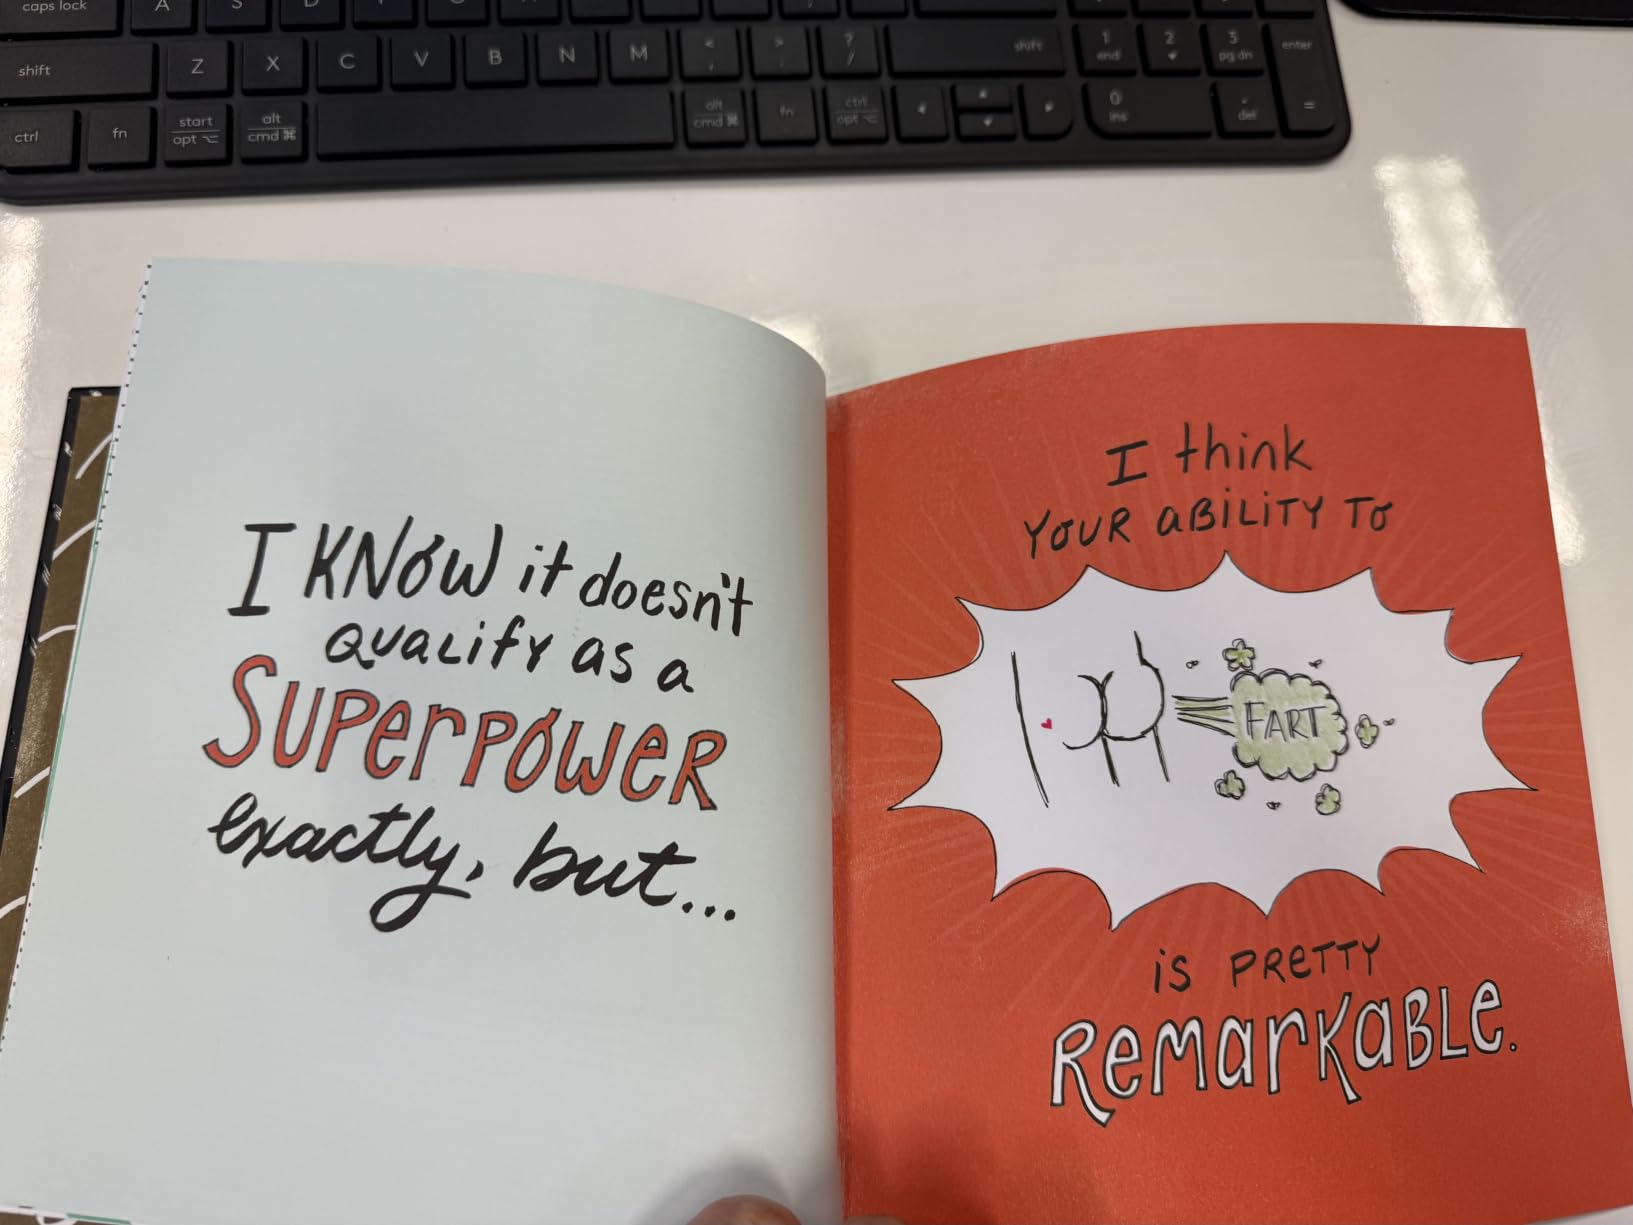 caps lock A S D F
shift Z X C V B N M < , > . ? / shift 1 end 2 3 pg dn enter
ctrl fn start opt alt cmd alt cmd fn ctrl opt 0 ins . del =
I KNOW it doesn't
QUALIFY AS A
SUPERPOWER
exactly, but...
I think
YOUR ABILITY TO
FART
is PRETTY
REMARKABLE.